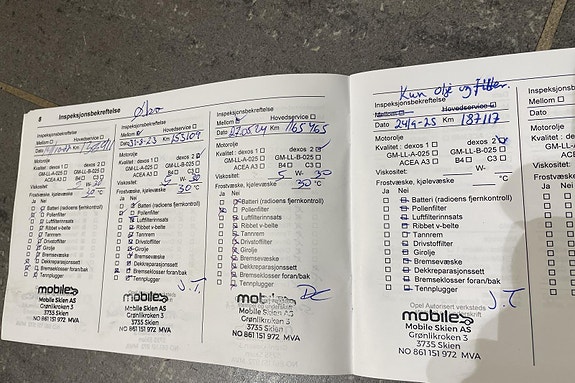 8 Inspeksjonsbekreftelse
Mellom
Hovedservice
Dato
Km
Motorolje
Kvalitet: dexos 1 dexos 2
GM-LL-A-025 GM-LL-B-025
ACEA A3 B4 C3
Viskositet W-
Frostværske, kjølevæske
°C
Ja Nei
Batteri (radioens fjernkontroll)
Pollenfilter
Luftfilterinnsats
Ribbet v-belte
Tannrem
Drivstoffilter
Girolje
Bremsevæske
Dekkreparasjonssett
Bremseklosser foran/bak
Tennplugger
mobile
Mobile Skien AS
Grønlikroken 3
3735 Skien
NO 861 151 972 MVA
Inspeksjonsbekreftelse
Mellom
Hovedservice
Dato 31-3-23 Km 155109
Motorolje
Kvalitet: dexos 1 dexos 2
GM-LL-A-025 GM-LL-B-025
ACEA A3 B4 C3
Viskositet 5 W- 30
Frostvæske, kjølevæske
30 °C
Ja Nei
Batteri (radioens fjernkontroll)
Pollenfilter
Luftfilterinnsats
Ribbet v-belte
Tannrem
Drivstoffilter
Girolje
Bremsevæske
Dekkreparasjonssett
Bremseklosser foran/bak
Tennplugger
J.T.
mobile
Mobile Skien AS
Grønlikroken 3
3735 Skien
NO 861 151 972 MVA
Inspeksjonsbekreftelse
Mellom
Hovedservice
Dato 27.05.24 Km 165465
Motorolje
Kvalitet: dexos 1 dexos 2
GM-LL-A-025 GM-LL-B-025
ACEA A3 B4 C3
Viskositet 5 W- 30
Frostvæske, kjølevæske
30 °C
Ja Nei
Batteri (radioens fjernkontroll)
Pollenfilter
Luftfilterinnsats
Ribbet v-belte
Tannrem
Drivstoffilter
Girolje
Bremsevæske
Dekkreparasjonssett
Bremseklosser foran/bak
Tennplugger
mobile
Mobile Skien AS
Grønlikroken 3
3735 Skien
NO 861 151 972 MVA
Kun olje og filter.
Inspeksjonsbekreftelse
Mellom Hovedservice
Dato 24/9-25 Km 187117
Motorolje
Kvalitet: dexos 1 dexos 2
GM-LL-A-025 GM-LL-B-025
ACEA A3 B4 C3
Viskositet W-
Frostvæske, kjølevæske
°C
Ja Nei
Batteri (radioens fjernkontroll)
Pollenfilter
Luftfilterinnsats
Ribbet v-belte
Tannrem
Drivstoffilter
Girolje
Bremsevæske
Dekkreparasjonssett
Bremseklosser foran/bak
Tennplugger
J.T
Opel Autorisert verksteds
mobile
Mobile Skien AS
Grønlikroken 3
3735 Skien
NO 861 151 972 MVA
Inspeks
Mellom
Dato
Motorolje
Kvalitet
Viskositet
Ja Nei